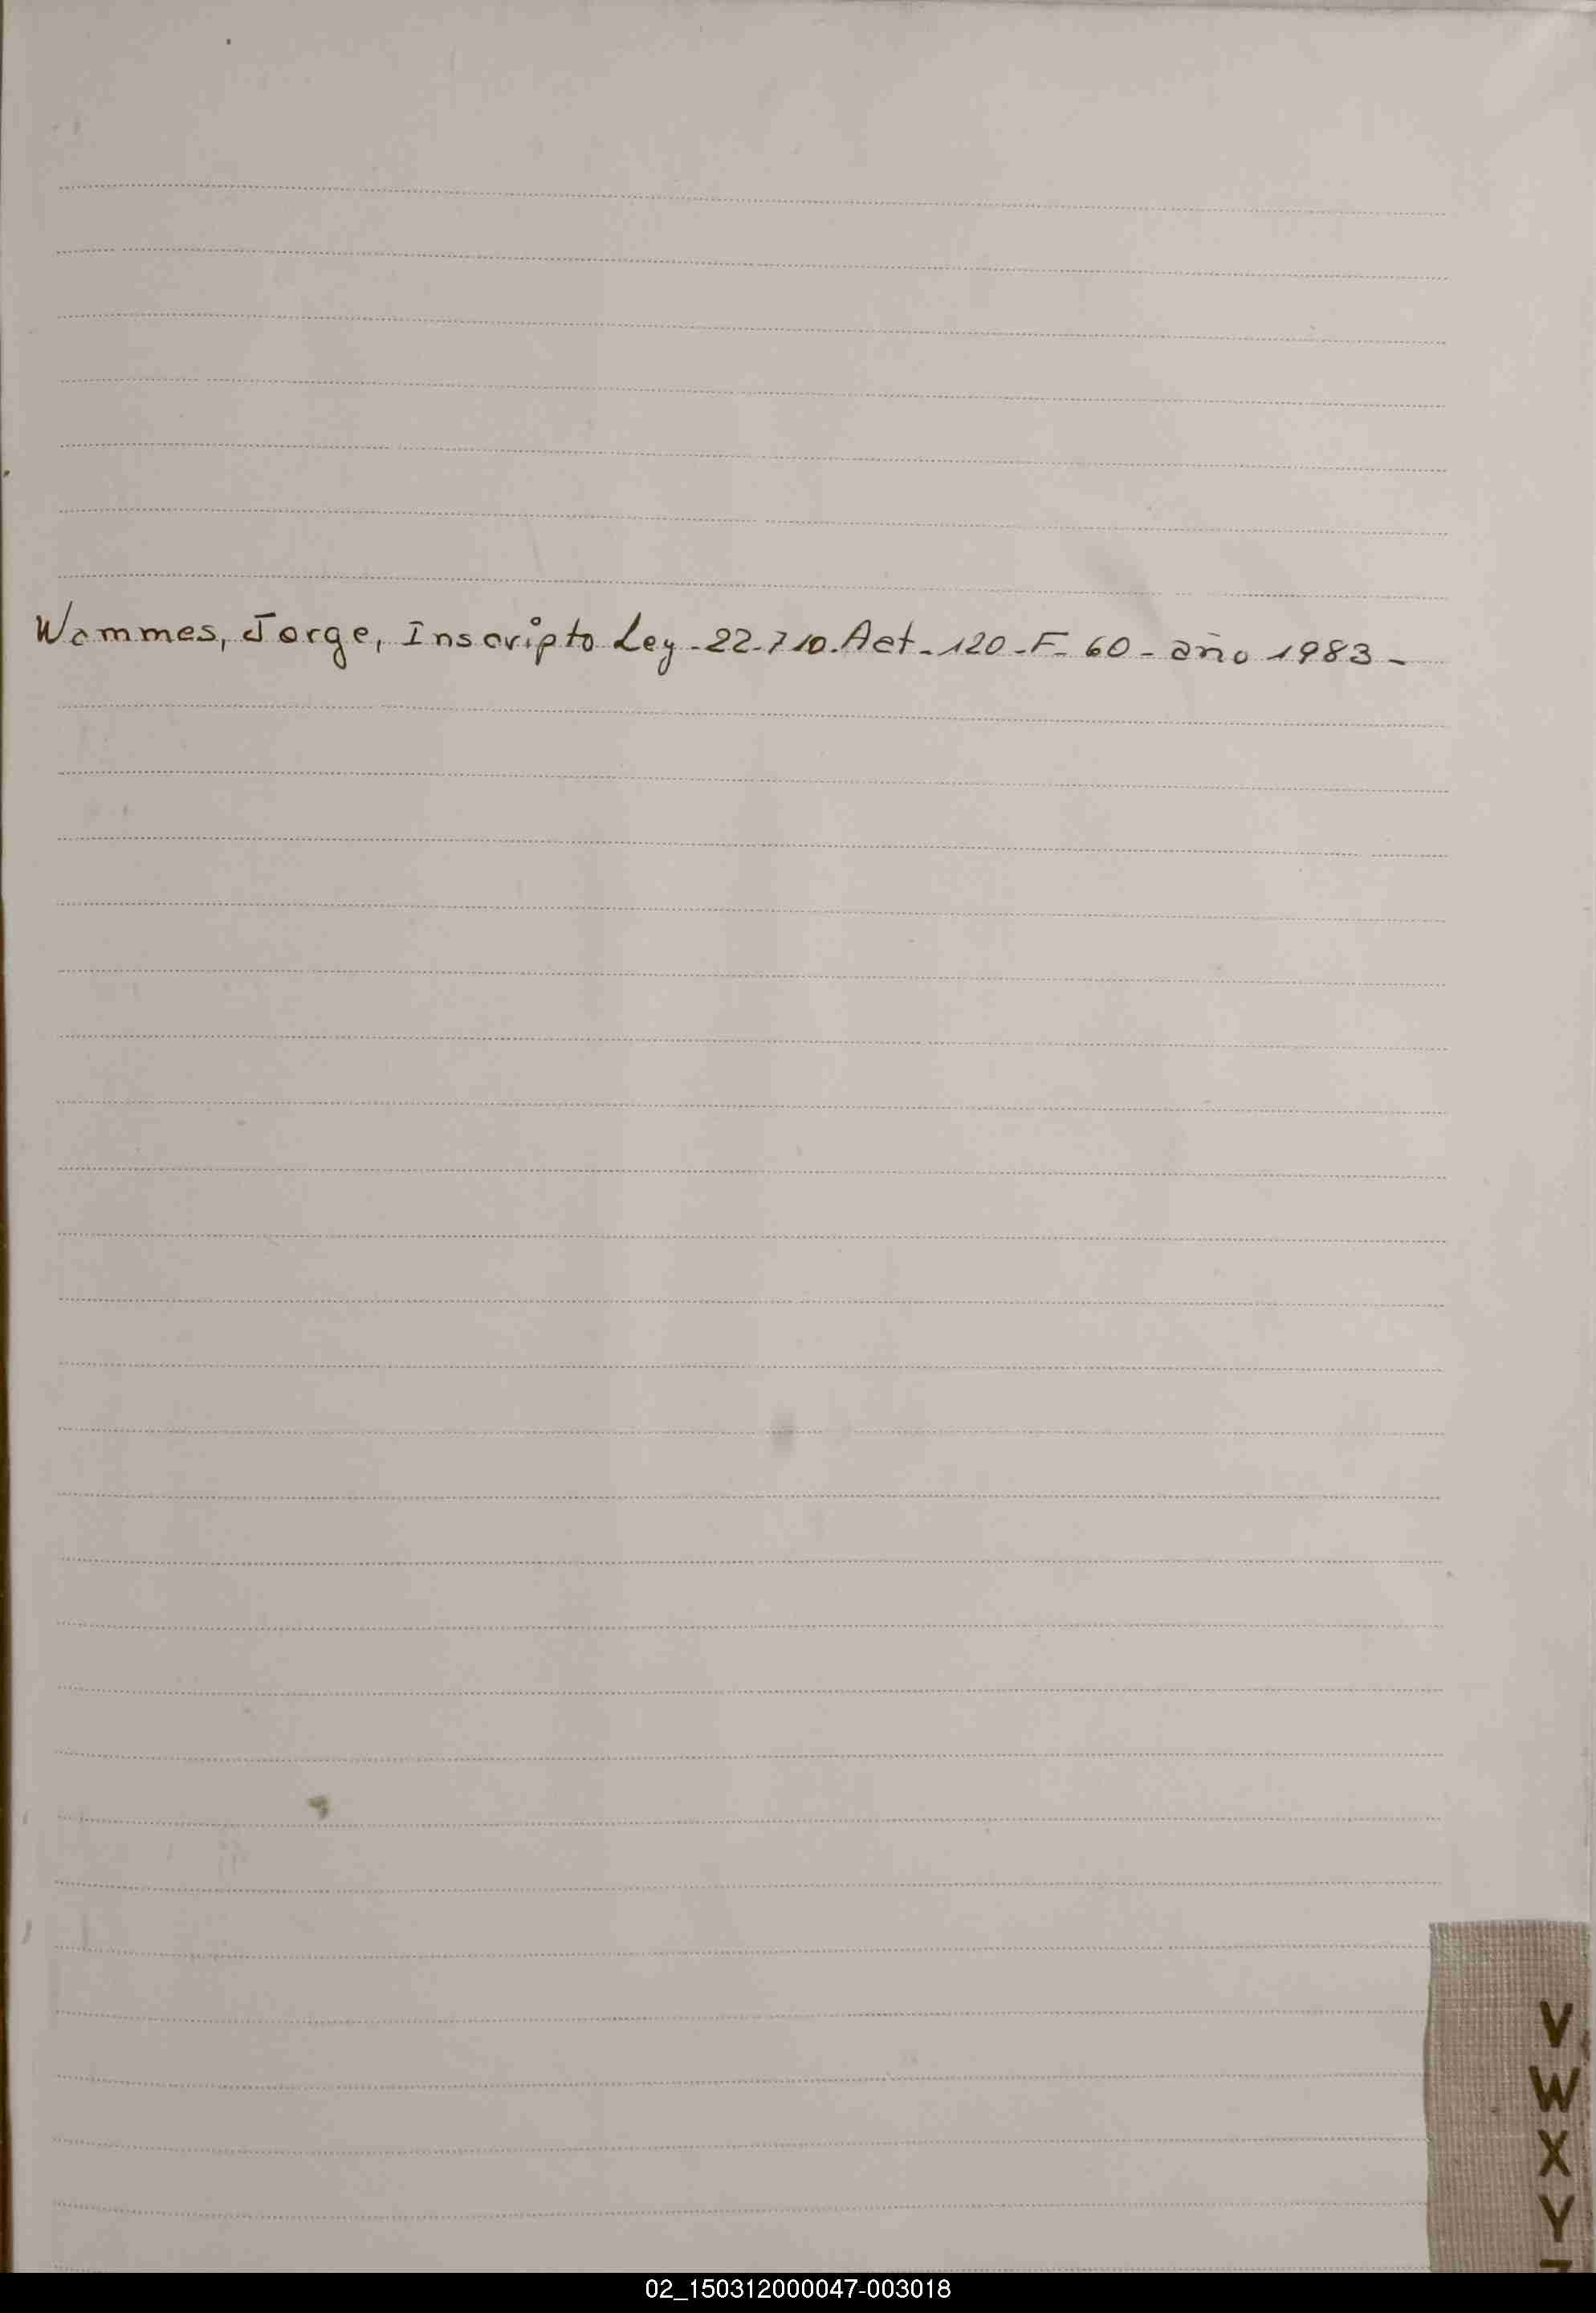 Wammes, Jorge, Inscripto Ley-22-710. Act-120-F-60-año 1983-
V
W
X
Y
02_150312000047-003018